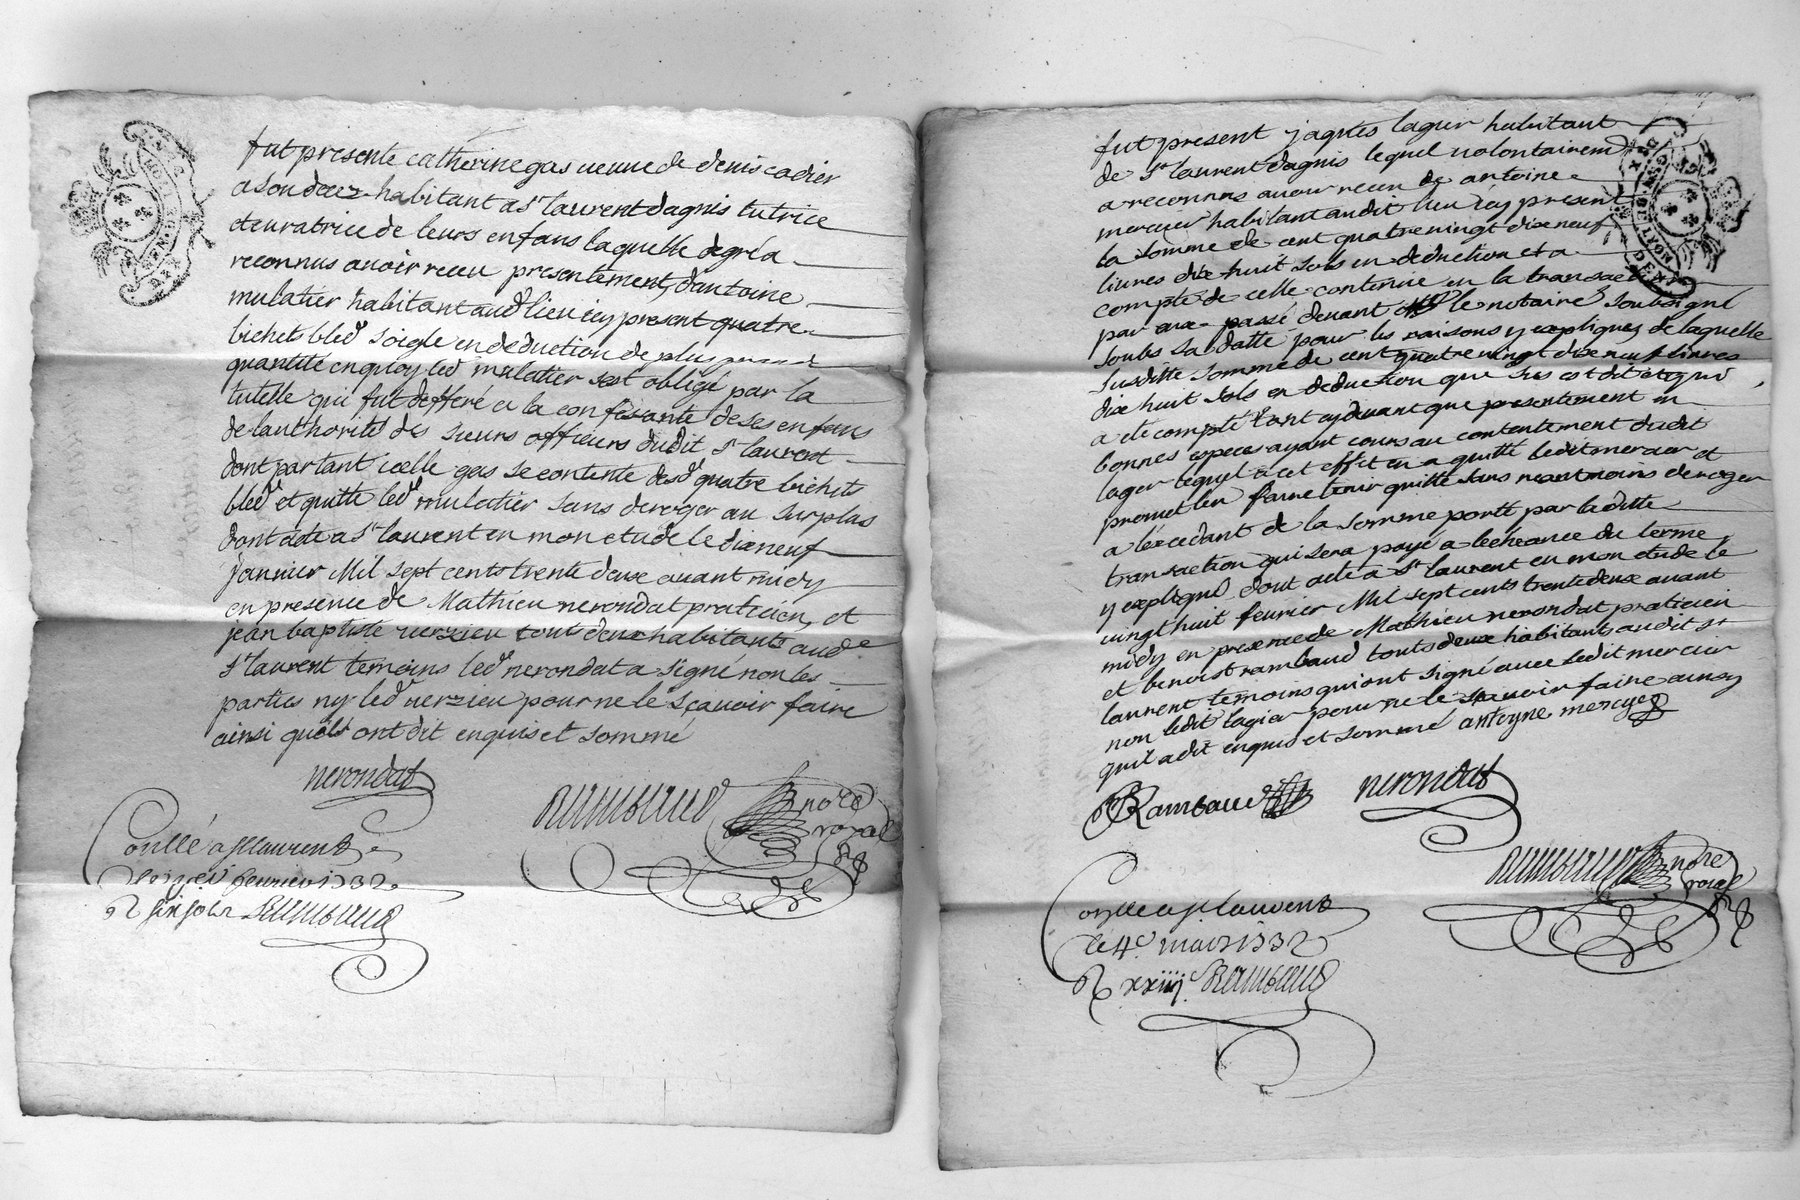 fut presente catherine gas veuve de denis cadier
a son decez habitant a St laurent dagnis tutrice
et curatrice de leurs enfans laquelle degré a
reconnus avoir receu presentement, dantoine
mulatier habitant aud lieu icy present quatre
bichets bled soigle en deduction de plus
quantité en quoy led mulatier sest obligé par la
tutelle qui fut defferé a la de ses enfans
de lauthorité des sieurs officiers dudit St laurent
dont partant icelle gas se contente desd quatre bichets
bled et quitte led mulatier sans deroger au surplus
dont acte a St laurent en mon etude le dixneuf
janvier Mil sept cents trente deux avant midy
en presence de Mathieu nerondat praticien, et
jean baptiste verzieu touts deux habitants aud
St laurent temoins led nerondat a signé non les
parties ny led verzieu pour ne le sçavoir faire
ainsi quils ont dit enquis et sommé
nerondat
Rambaud nore royal
Conllé a St laurent
fevrier 1732
R six sols Rambaud
fut present jaques lager habitant
de St laurent dagnis lequel volontairemt
a reconnus avoir receu de antoine
mercier habitant audit lieu icy present
la somme de cent quatre vingt dixe neuf
livres dixe huit sols en deduction et a
compte de celle contenue en la transaction
par eux passé devant le notaire soubsigné
soubs sa datte pour les raisons y expliquez de laquelle
susditte somme de cent quatre vingt dixe neuf livres
dixe huit sols en deduction que sus est dit et qui
a eté compté tant cydevant que presentement en
bonnes especes ayant cours au contentement dudit
lager lequel a cet effet en a quitté ledit mercier et
promet len faire tenir quitte sans neantmoins deroger
a lexcedant de la somme porté par laditte
transaction qui sera payé a lecheance du terme
y expliqué dont acte a St laurent en mon etude le
vingt huit fevrier Mil sept cents trente deux avant
midy en presence de Mathieu nerondat praticien
et benoist rambaud touts deux habitants audit St
laurent temoins qui ont signé avec ledit mercier
non ledit lagier pour ne le sçavoir faire ainsy
quil a dit enquis et sommé antoyne mercyer
Rambaud nerondat
Rambaud nore royal
Conllé a St laurent
le 4e mars 1732
R xxiiij s Rambaud